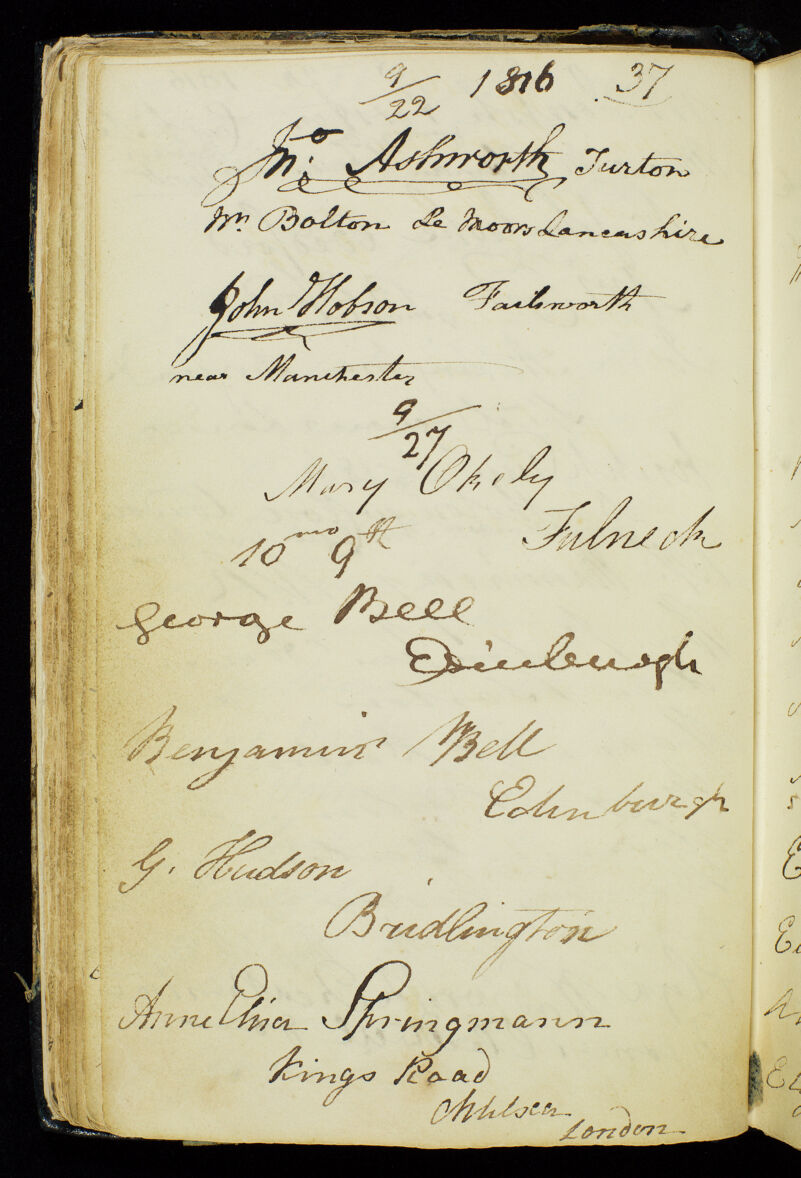 9/22 1816 37
Jno: Ashworth Turton
Nr Bolton Le Moors Lancashire
John Hobson Failsworth
near Manchester
9/27
Mary Okely
10mo 9th Fulneck
George Bell
Edinburgh
Benjamin Bell
Edinburgh
G. Hudson
Bridlington
Anne Eliza Springmann
Kings Road
Chelsea
London